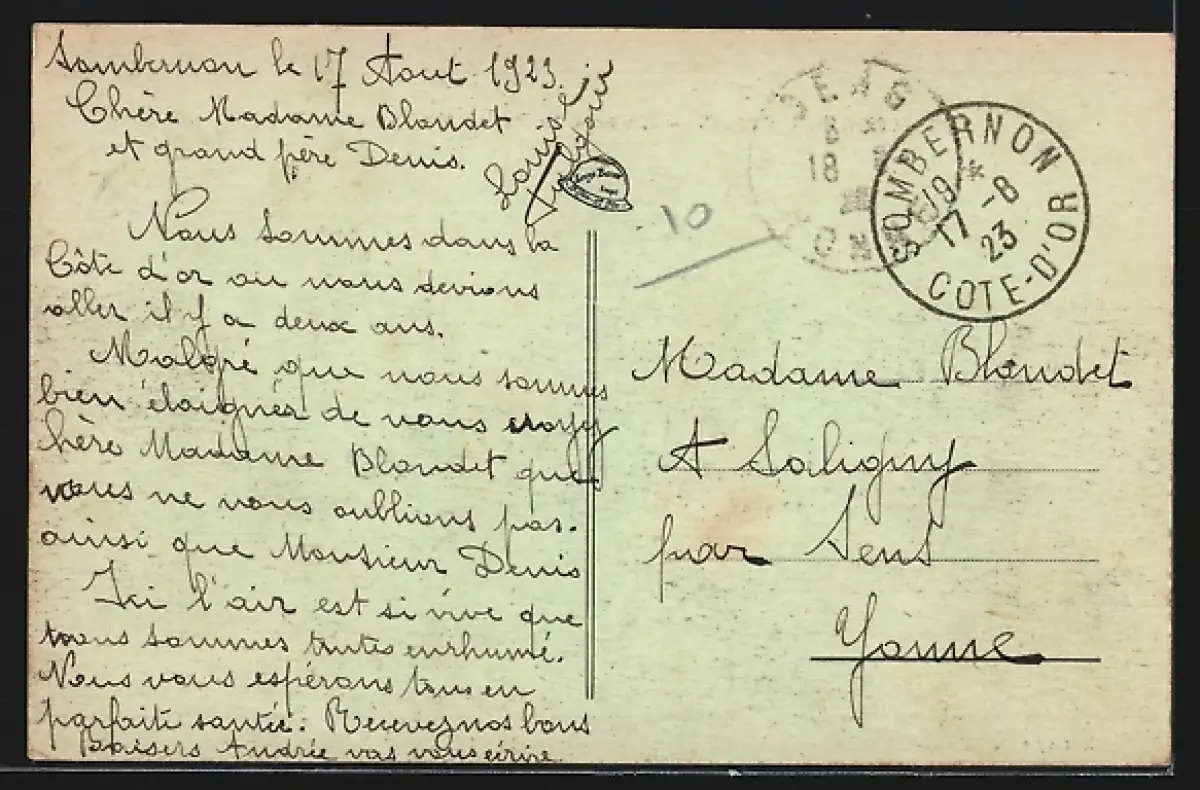 Sombernon le 17 Aout 1923.
Chère Madame Blondet
et grand père Denis.
Nous sommes dans la
Côte d'or ou nous devions
aller il y a deux ans.
Malgré que nous sommes
bien éloignés de vous croyez
chère Madame Blondet que
nous ne vous oublions pas.
ainsi que Monsieur Denis
Ici l'air est si vive que
nous sommes toutes enrhumé.
Nous vous espérons tous en
parfaite santée. Recevez nos bons
Baisers Andrée vas vous écrire.
Louise
10
SOMBERNON
19 * -8
17
23
COTE-D'OR
18
Madame Blondet
A Saligny
par Sens
Yonne